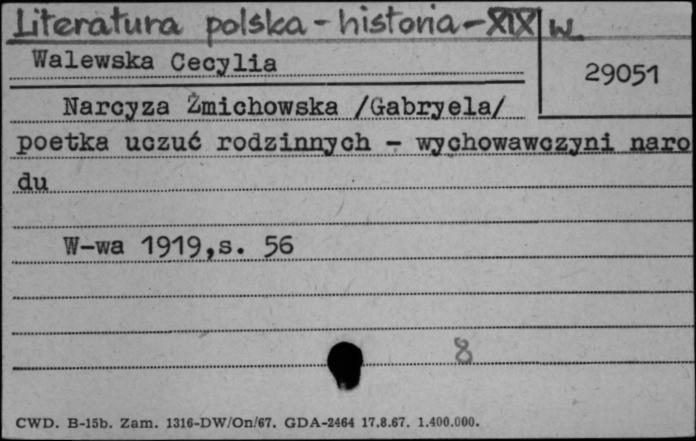 Literatura polska - historia - XIX w.
Walewska Cecylia
29051
Narcyza Żmichowska /Gabryela/
poetka uczuć rodzinnych - wychowawczyni naro
du
W-wa 1919,s. 56
8
CWD. B-15b. Zam. 1316-DW/On/67. GDA-2464 17.8.67. 1.400.000.